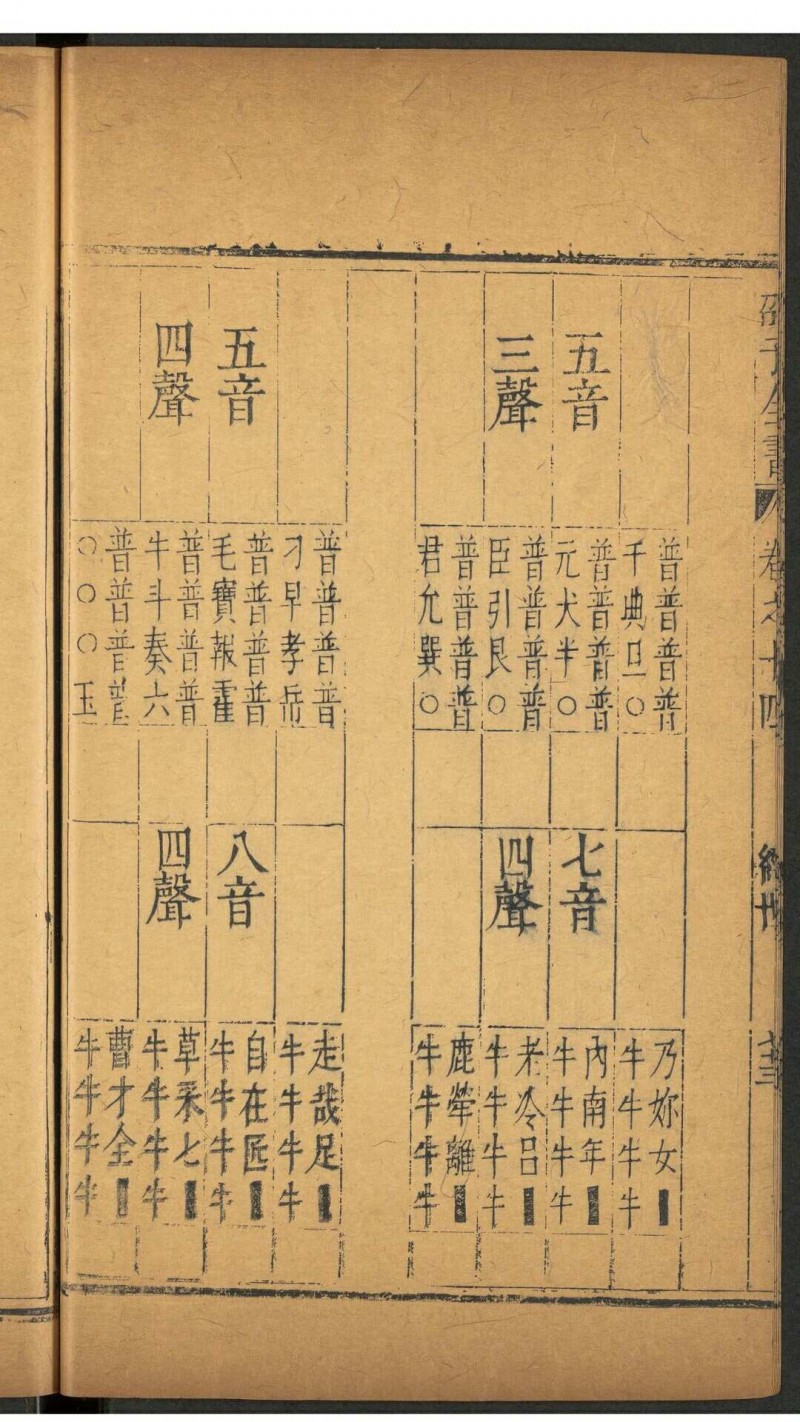 邵子全書
卷之十四
經世
五音
三聲
普普普普
千典旦○
普普普普
元犬半○
普普普普
臣引艮○
普普普普
君允巽○
七音
四聲
乃妳女■
牛牛牛牛
內南年■
牛牛牛牛
老冷呂■
牛牛牛牛
鹿犖離■
牛牛牛牛
五音
四聲
普普普普
刁早孝岳
普普普普
毛寶報霍
普普普普
牛斗奏六
普普普普
○○○玉
八音
四聲
走哉足■
牛牛牛牛
自在匠■
牛牛牛牛
草采七■
牛牛牛牛
曹才全■
牛牛牛牛